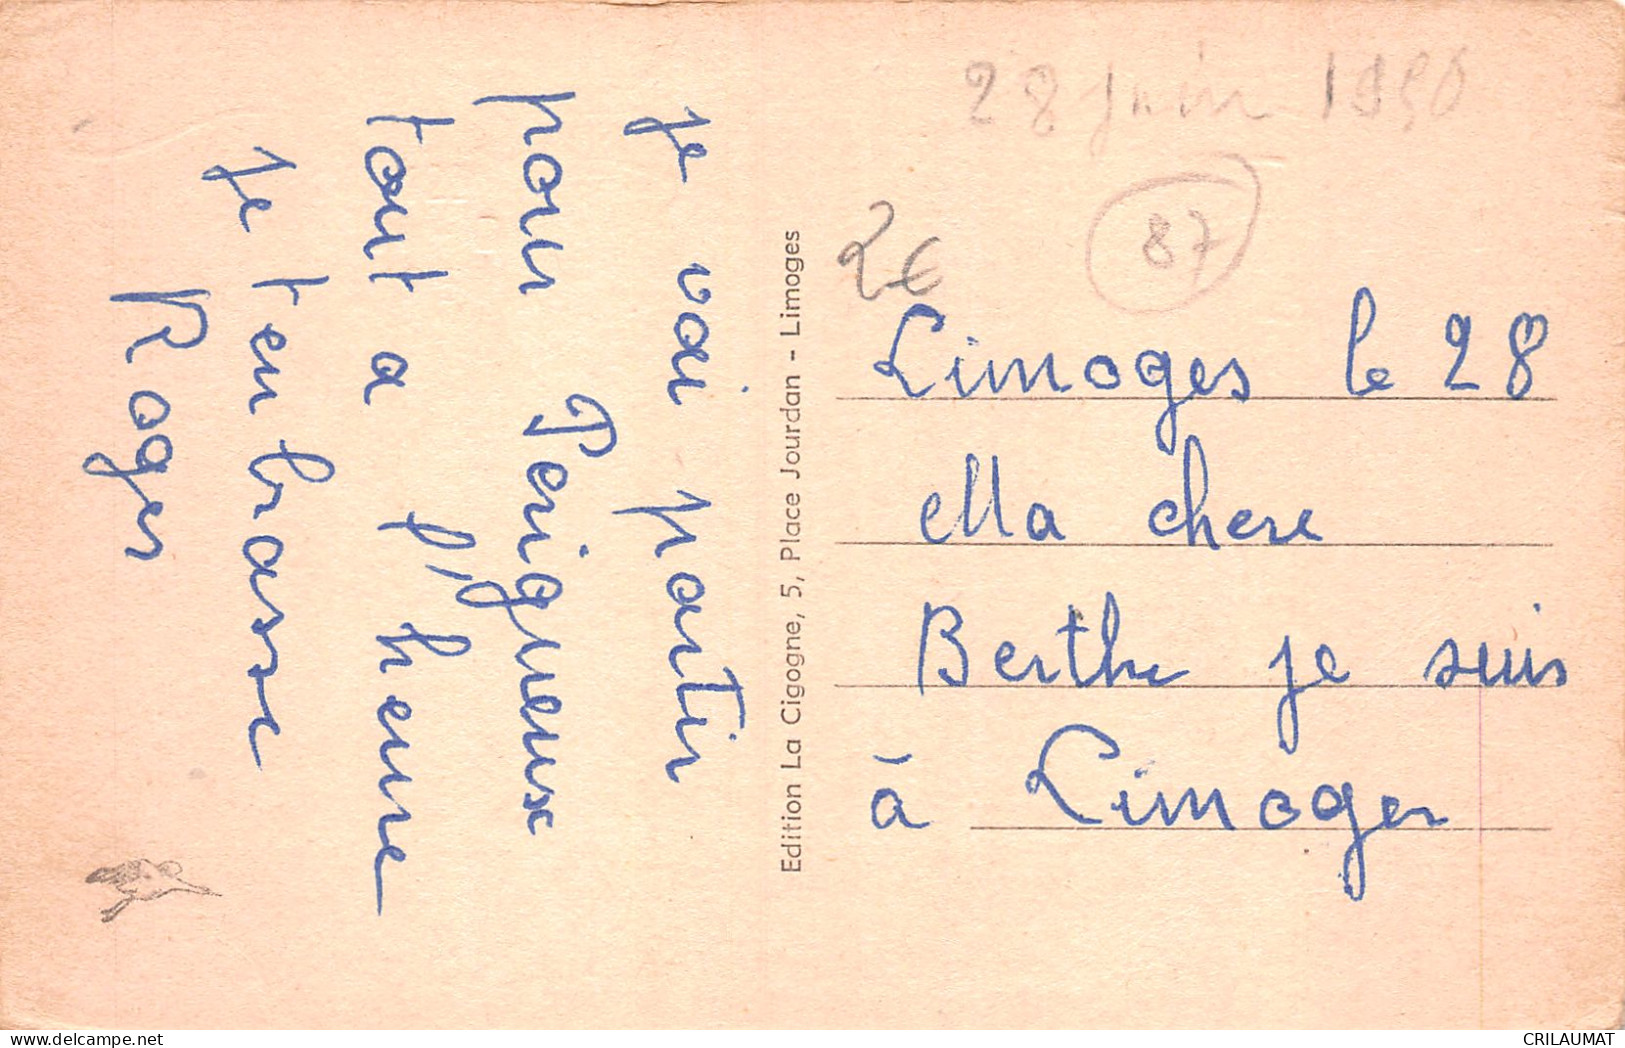 28 juin 1950
87
2€
Limoges le 28
Ma chere
Berthe je suis
à Limoges
Edition La Cigogne, 5, Place Jourdan - Limoges
je vai partir
pour Perigueux
tout a l'heure
je t'enbrasse
Roger
CRILAUMAT